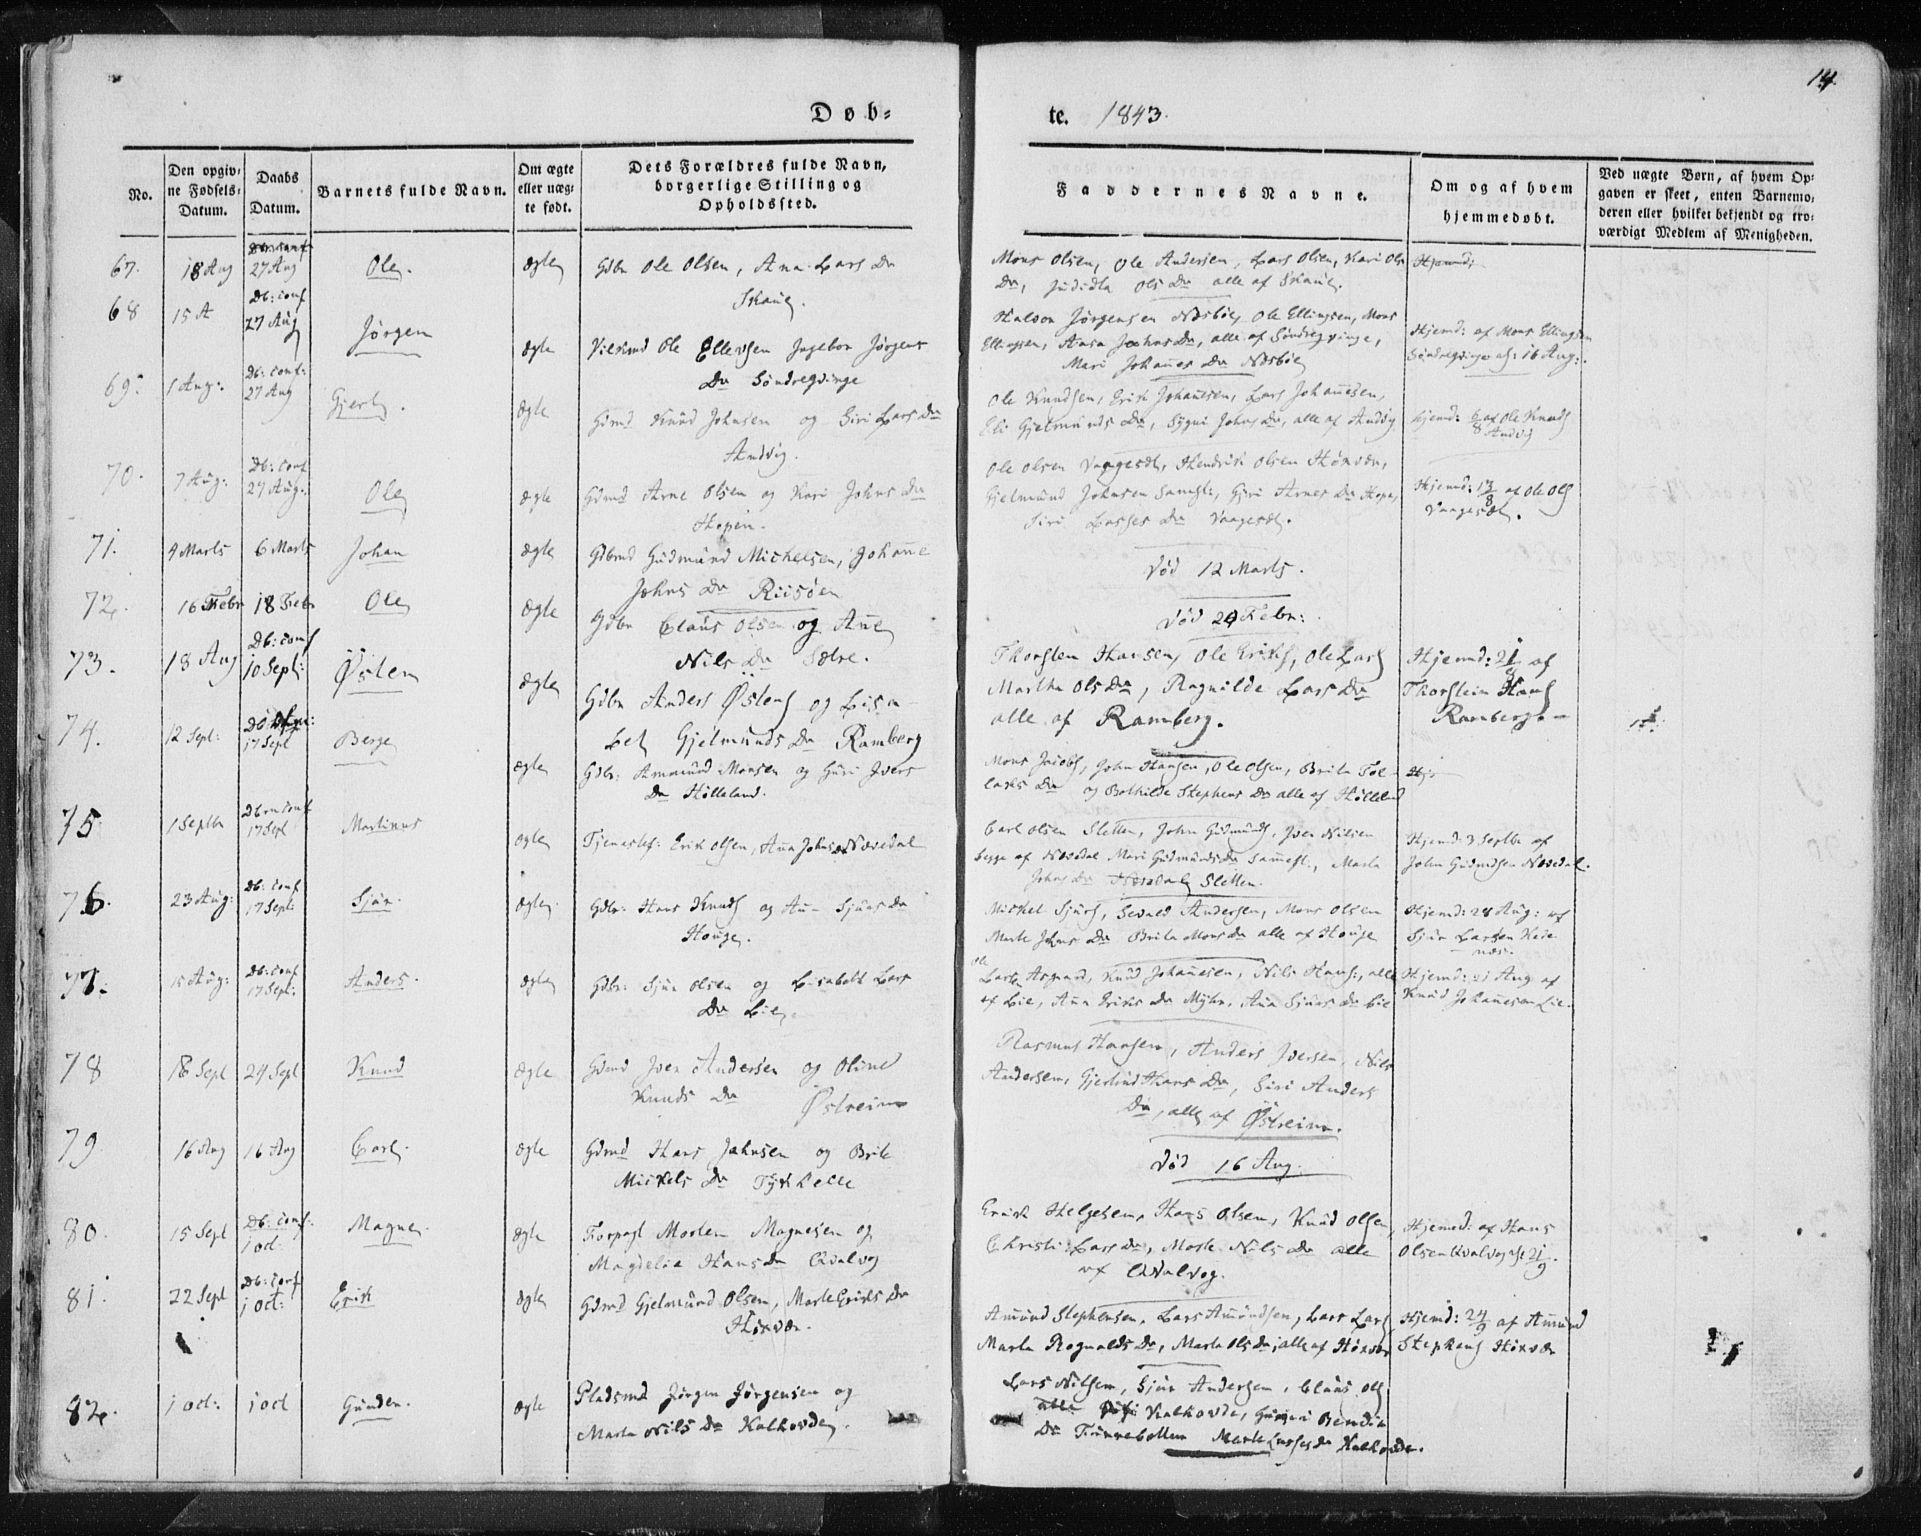 14.
Døb=
te. 1843.
No.
Den opgiv=
ne Fødsels=
Datum.
Daabs
Datum.
Barnets fulde Navn.
Om ægte
eller uæg=
te født.
Dets Forældres fulde Navn,
borgerlige Stilling og
Opholdssted.
Faddernes Navne.
Om og af hvem
hjemmedøbt.
Ved uægte Børn, af hvem Op=
gaven er skeet, enten Barnemo=
deren eller hvilket bekjendt og tro=
værdigt Medlem af Menigheden.
67. 18 Aug 27 Aug Ole. ægte Gdbr Ole Olsen, Ana Lars Dr
Mons Olsen, Ole Andersen, Lars Olsen, Kari Ols
Dr, Ols Dr alle af Skaug.
68 15 A Db: conf
27 Aug Jørgen ægte Ole Ellevsen Ingebor Jørgens
Dr Søndregvinge
Halvor Jørgensen Næsbø, Ole Ellingsen, Mons
Ellingsen, Anna Johns Dr, alle af Søndregvinge,
Mari Johanes Dr Næsbø
Hjemd: af Mons Ellingsen
16 Aug:
69. 1 Aug: Db: conf:
27 Aug Gjert. ægte Gdmd Knud Johnsen og Siri Lars Dr
Andvig.
Ole Knudsen, Erik Johanesen, Lars Johanesen,
Eli Gjelmunds Dr, Sygni Johns Dr, alle af Andvig
Hjemd: 6/8 af Ole Knuds
Andvig
70. 7 Aug: Db: conf
27 Aug: Ole ægte Gdmd Arne Olsen og Kari Johns Dr
Ole Olsen Hendrik Olsen
Gjelmund Johnsen Giri Arnes Dr Hope,
Siri Dr
Hjemd: 13/8 af Ole Ols
71. 4 Marts 6 Marts Johan ægte Gdbrmd Gudmund Michelsen, Johanne
Johns Dr Riisøen
død 12 Marts.
72. 16 Febr 18 Febr Ole ægte Gdbr Claus Olsen og Ane
Nils Dr Sætre.
død 24 Febr:
73. 18 Aug Db: conf
10 Sept: Østen ægte Gdbr Anders Østens og Lisa-
bet Gjelmunds Dr Ramberg
Thorsten Hansen, Ole Eriks, Ole Lars
Martha Ols Dr, Ragnilde Lars Dr
alle af Ramberg.
Hjemd: 21/8 af
Thorstein Hans
Ramberg.
74. 12 Sept: 17 Sept Berge ægte Gdbr: Amund Monsen og Guri Ivers
Dr Hølleland.
Mons Jacobs, John Hansen, Ole Olsen, Brita
og Bothilde Stephens Dr alle af Hølleland
75 1 Septbr 17 Sept Martinus ægte Tjenestef: Erik Olsen, Ana Johns Dr Næsedal
Carl Olsen Sletten, John Gudmunds, Iver Nilsen
begge af Næsedal Mari Gudmunds Dr Marta
Johns Dr Sletten.
Hjemd: 3 Septbr af
John Gudmdsen Næsedal.
76. 23 Aug: Db: conf
17 Sept: Sjur. ægte Gdbr: Hans Knuds og An- Sjurs Dr
Houge.
Mickel Sjurs, Sevald Andersen, Mons Olsen
Marte Johns Dr Brita Mons Dr alle af Houge
Hjemd: 28 Aug: af
Sjur Larsen
77. 15 Aug: Db: conf
17 Sept: Anders. ægte Gdbr: Sjur Olsen og Lisabeth Lars
Dr Lie.
Knud Johanesen, Nils Hans:, alle
af Lie, Ana Eriks Dr Myhr, Ana Sjurs Dr Lie
Hjemd: 21 Aug af
Knud Johanesen Lie.
78 18 Sept 24 Sept Knud ægte Gdmd Iver Andersen og Oline
Knuds Dr Østreim
Rasmus Hansen, Anders Iversen, Nils
Andersen, Gjertrud Hans Dr, Siri Anders
Dr, alle af Østreim.
79 16 Aug 16 Aug Carl. ægte Gdmd Hans Johnsen og Brite
Mickels Dr
død 16 Aug.
80. 15 Sept Db: conf:
1 oct: Magne. ægte Forpagt Morten Magnesen og
Magdelia Hans Dr Qvalvog
Erick Helgesen, Hans Olsen, Knud Olsen,
Christi Lars Dr, Marte Nils Dr alle
af Qvalvog.
Hjemmed: af Hans
Olsen Qvalvog 21/9.
81. 22 Sept Db: conf
1 oct: Erik ægte Gdmd Gjelmund Olsen, Marte Eriks Dr
Amund Stephensen, Lars Amundsen, Lars Lars
Marta Rognalds Dr, Marta Ols Dr, alle af
Hjemd: 24/9 af Amund
Stephens
82. 1 oct: 1 oct Gunder. ægte Pladsmd Jørgen Jørgensen og
Marta Nils Dr Kalhovde.
Lars Nilsen, Sjur Andersen, Claus Ols
Kalhovde, Bendix
Dr Marte Dr Kalhovde.